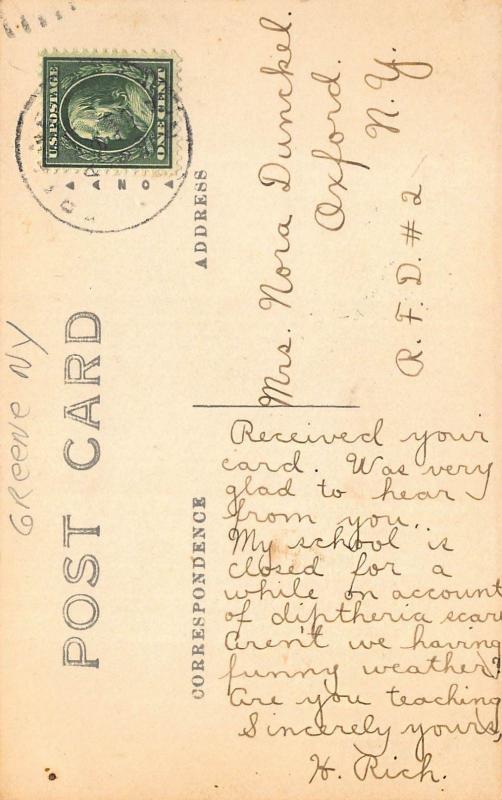 U.S. POSTAGE
ONE CENT
Greene NY
POST CARD
CORRESPONDENCE
ADDRESS
Mrs. Nora Dunckel.
Oxford.
N.Y.
R.F.D. #2
Received your
card. Was very
glad to hear
from you..
My school is
closed for a
while on account
of diptheria scare
Aren't we having
funny weather?
Are you teaching
Sincerely yours,
H. Rich.